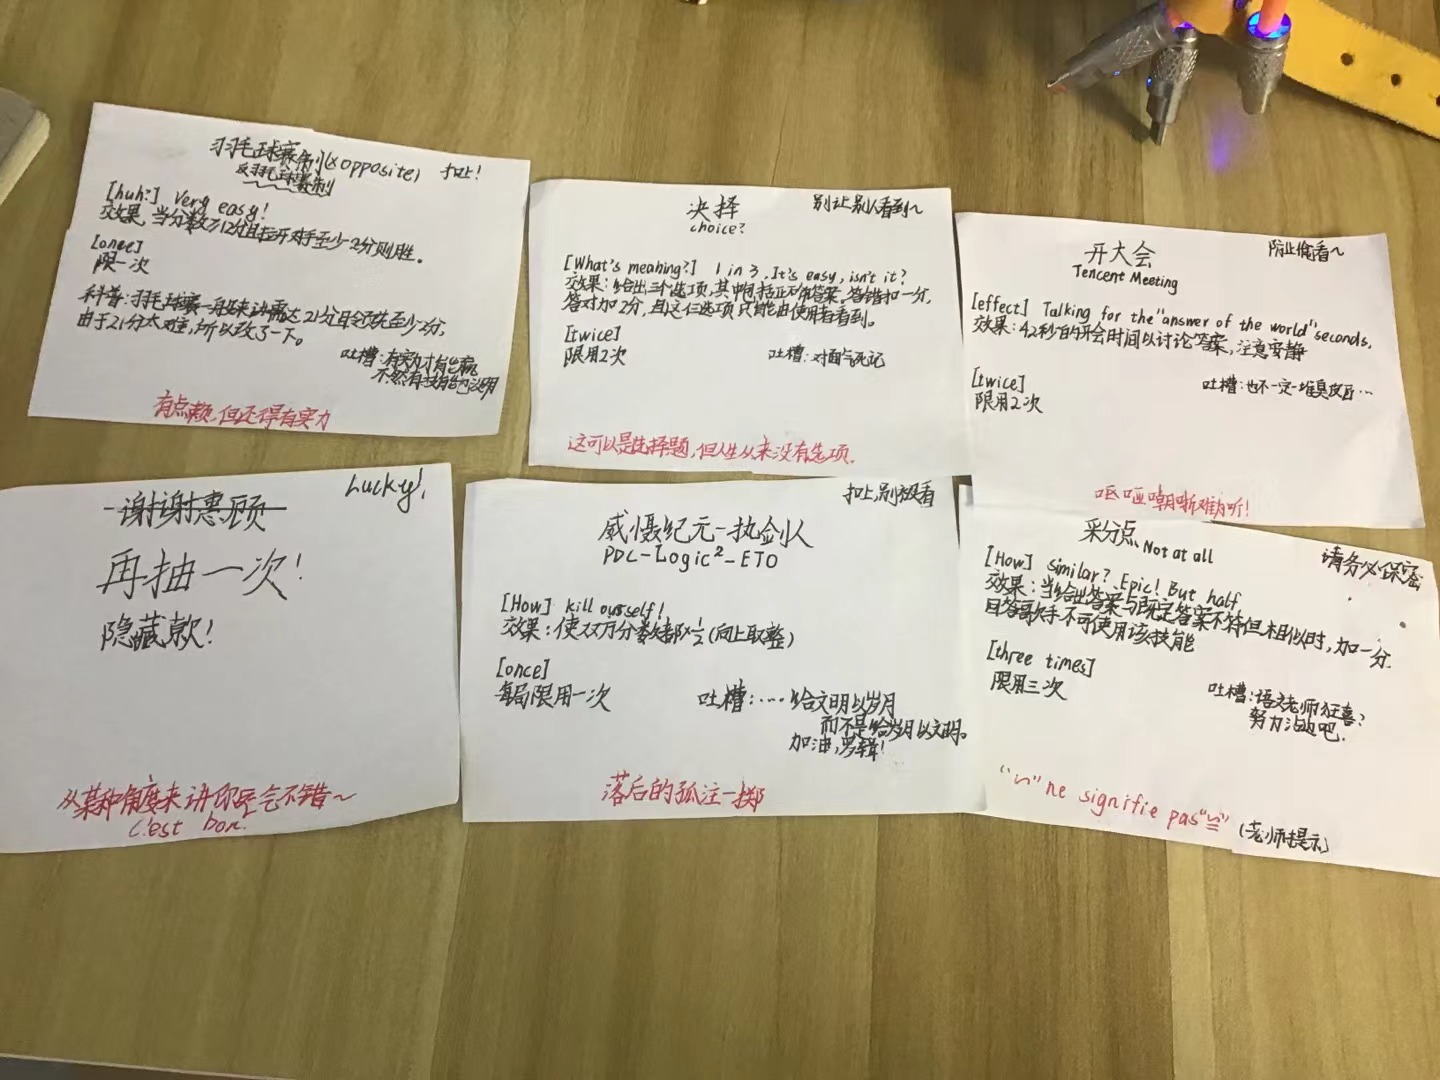 羽毛球赛制(×opposite) 扣上!
反羽毛球赛制
[huh?] Very easy!
效果 当分数为12分且拉开对手至少2分则胜。
[once]
限一次
科普:羽毛球赛一般来讲需达21分且领先至少2分,
由于21分太难,所以改了一下。
吐槽:有实力才有出病
不然有技能也没用
有点赖,但还得有实力
决择 别让别人看到~
choice?
[What's meaning?] 1 in 3, It's easy, isn't it?
效果:给出三个选项,其中包括正确答案,答错扣一分,
答对加2分,且这仨选项只能由使用者看到。
[twice]
限用2次 吐槽:对面气死记
这可以是选择题,但人生从来没有选项.
开大会 防止偷看~
Tencent Meeting
[effect] Talking for the "answer of the world" seconds.
效果:42秒的开会时间以讨论答案,注意安静
[twice]
限用2次 吐槽:也不一定一堆臭皮匠…
呕哑嘲哳难为听!
谢谢惠顾 Lucky!
再抽一次!
隐藏款!
从某种角度来讲你运气不错~
C'est bon.
扣上,别被看
威慑纪元-执剑人
PDC-Logic²-ETO
[How] kill ourself!
效果:使双方分数都×½(向上取整)
[once]
每局限用一次 吐槽:…给文明以岁月
而不是给岁月以文明。
加油,罗辑!
落后的孤注一掷
采分点 Not at all 请务必保密
[How] similar? Epic! But half
效果:当给出答案与既定答案不符但相似时,加一分.
目答歌手不可使用该技能
[three times]
限用三次 吐槽:语文老师狂喜?
努力沾边吧.
"∽" ne signifie pas "≌"
(老师提示)